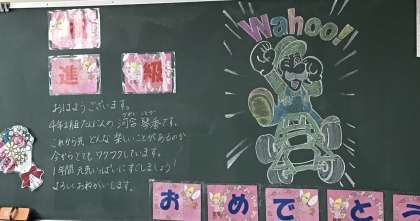 Wahoo!
進級
おはようございます。
4年2組たんにんの河合 琴香です。
これから先 どんな楽しいことがあるか
今からとてもワクワクしています。
1年間 元気いっぱいにすごしましょう!
よろしくおねがいします。
おめでと